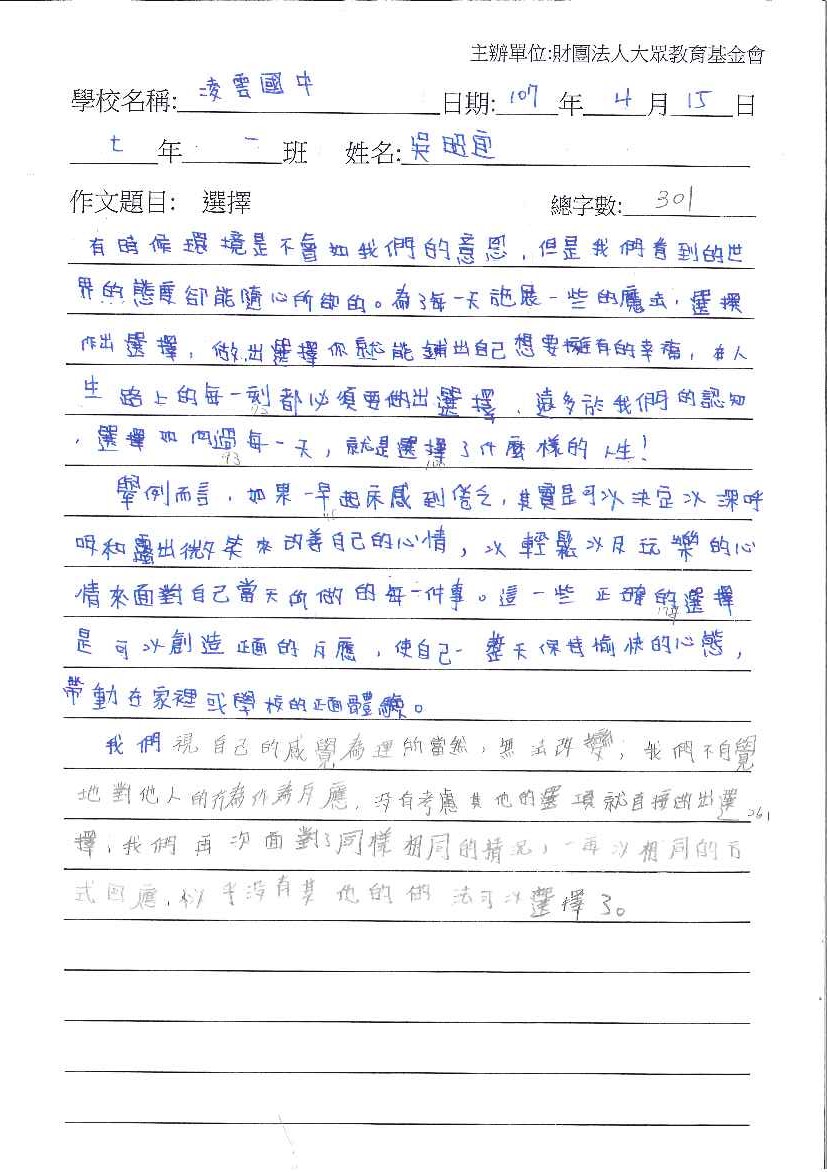 主辦單位:財團法人大眾教育基金會
學校名稱: 凌雲國中 日期: 107 年 4 月 15 日
七 年 一 班 姓名: 吳昭宜
作文題目: 選擇 總字數: 301
有時候環境是不會如我們的意思,但是我們看到的世
界的態度卻能隨心所欲的。為了每一天施展一些的魔法,選擇
作出選擇,做出選擇你就能鋪出自己想要擁有的幸福,在人
生路上的每一刻都必須要做出選擇,遠多於我們的認知
,選擇如何過每一天,就是選擇了什麼樣的人生!
舉例而言,如果一早起床感到倦乏,其實是可以決定以深呼
吸和露出微笑來改善自己的心情,以輕鬆以及玩樂的心
情來面對自己當天所做的每一件事。這一些正確的選擇
是可以創造正面的反應,使自己一整天保持愉快的心態,
帶動在家裡或學校的正面體驗。
我們視自己的感覺為理所當然,無法改變,我們不自覺
地對他人的行為作為反應,沒有考慮其他的選項就直接做出選
261
擇,我們再次面對了同樣相同的情況,一再以相同的方
式回應,似乎沒有其他的做法可以選擇了。